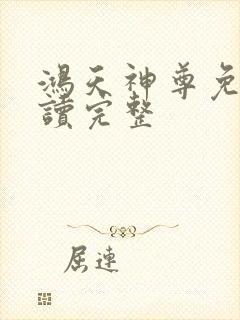 鴻天神尊免
讀完整
屈連